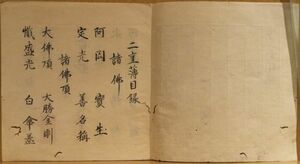 二重薄目録
諸佛
阿閦 寶生
定光 善名稱
諸佛頂
大佛頂 大勝金剛
熾盛光 白傘蓋